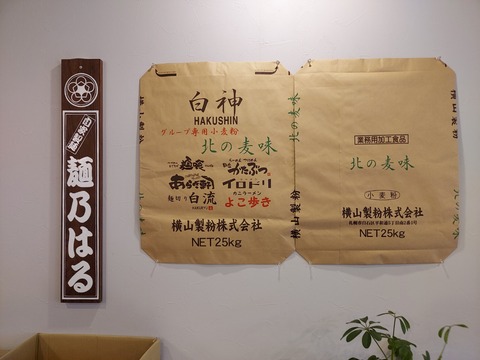 自家製麺
麺乃はる
白神
HAKUSHIN
グループ専用小麦粉
北の麦味
イロドリ
カニラーメン
麺切り 白流
よこ歩き
横山製粉株式会社
NET25kg
北の麦味
横山製粉
業務用加工食品
北の麦味
小麦粉
横山製粉株式会社
NET25kg